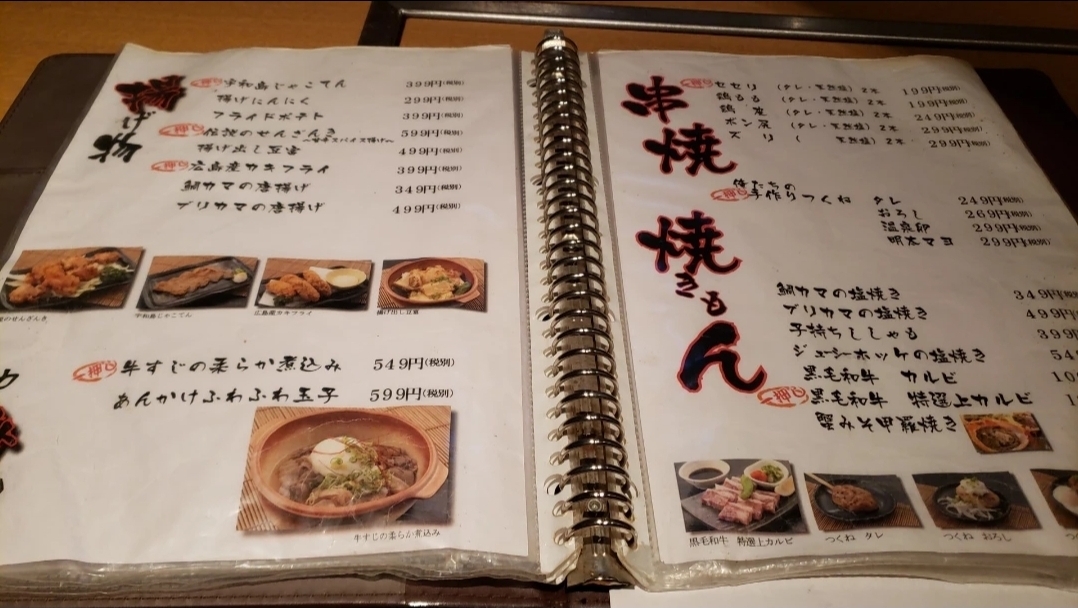 揚げ物
押 宇和島じゃこてん 399円(税別)
揚げにんにく 299円(税別)
フライドポテト 399円(税別)
押 伝説のせんざんき 599円(税別)
揚げ出し豆富 499円(税別)
押 広島産カキフライ 399円(税別)
鯛カマの唐揚げ 349円(税別)
ブリカマの唐揚げ 499円(税別)
のせんざんき
宇和島じゃこてん
広島産カキフライ
揚げ出し豆富
押 牛すじの柔らか煮込み 549円(税別)
あんかけふわふわ玉子 599円(税別)
牛すじの柔らか煮込み
串焼
押 セセリ (タレ・天然塩) 2本 199円(税別)
鶏もも (タレ・天然塩) 2本 199円(税別)
鶏皮 (タレ・天然塩) 2本 249円(税別)
ボンジリ (タレ・天然塩) 2本 299円(税別)
ズリ ( 天然塩) 2本 299円(税別)
俺たちの
押 手作りつくね タレ 249円(税別)
おろし 269円(税別)
温泉卵 299円(税別)
明太マヨ 299円(税別)
焼きもん
鯛カマの塩焼き 349円
ブリカマの塩焼き 499円
子持ちししゃも 399
ジューシーホッケの塩焼き
黒毛和牛 カルビ
押 黒毛和牛 特選上カルビ
蟹みそ甲羅焼き
黒毛和牛 特選上カルビ
つくね タレ
つくね おろし